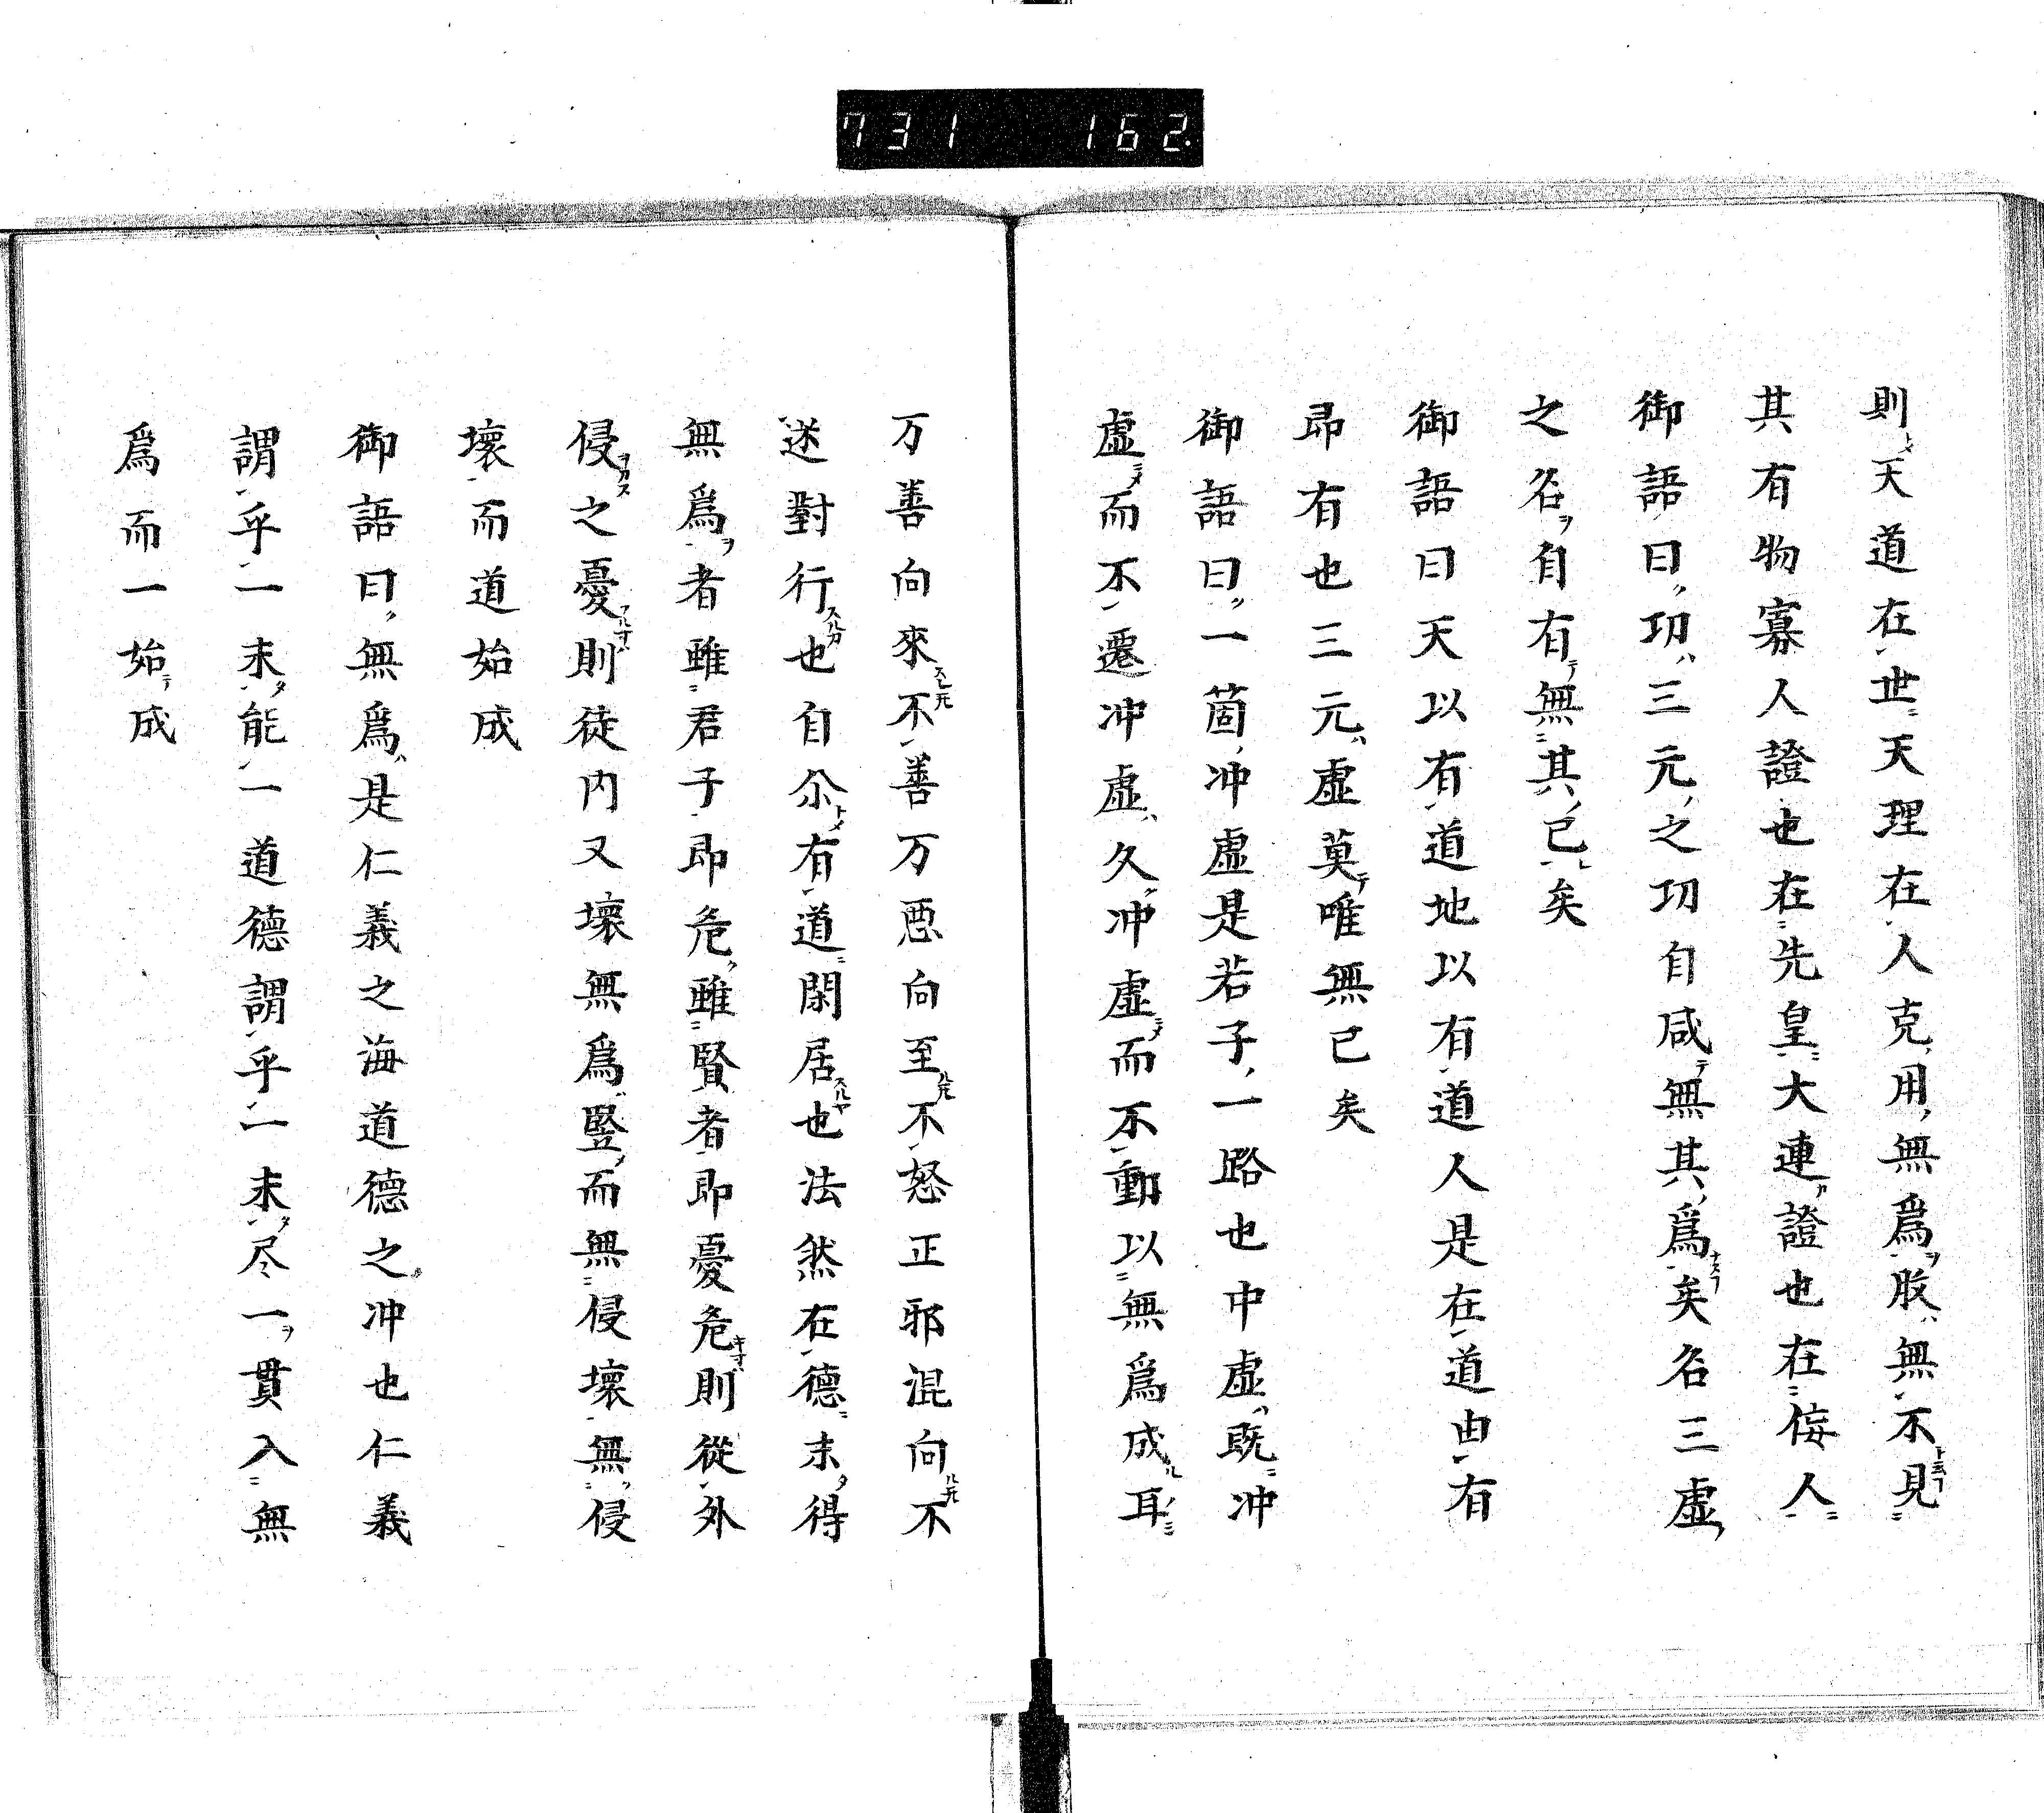 731 162
則天道在世天理在人克用無爲股無不見
其有物寡人證也在先皇大連證也在侫人
御語曰功三元之功自咸無其爲矣名三虛
之名自有無其已矣
御語曰天以有道地以有道人是在道由有
昂有也三元虛莫唯無已矣
御語曰一箇冲虛是若子一路也中虛既冲
虛而不遷冲虛久冲虛而不動以無爲成耳
万善向來不善万惡向至不怒正邪混向不
迷對行也自尒有道閑居也法然在德末得
無爲者雖君子即危雖賢者即憂危則從外
侵之憂則徒内又壞無爲竪而無侵壞無侵
壞而道始成
御語曰無爲是仁義之海道德之冲也仁義
謂乎一末能一道德謂乎一末尽一貫入無
爲而一始成